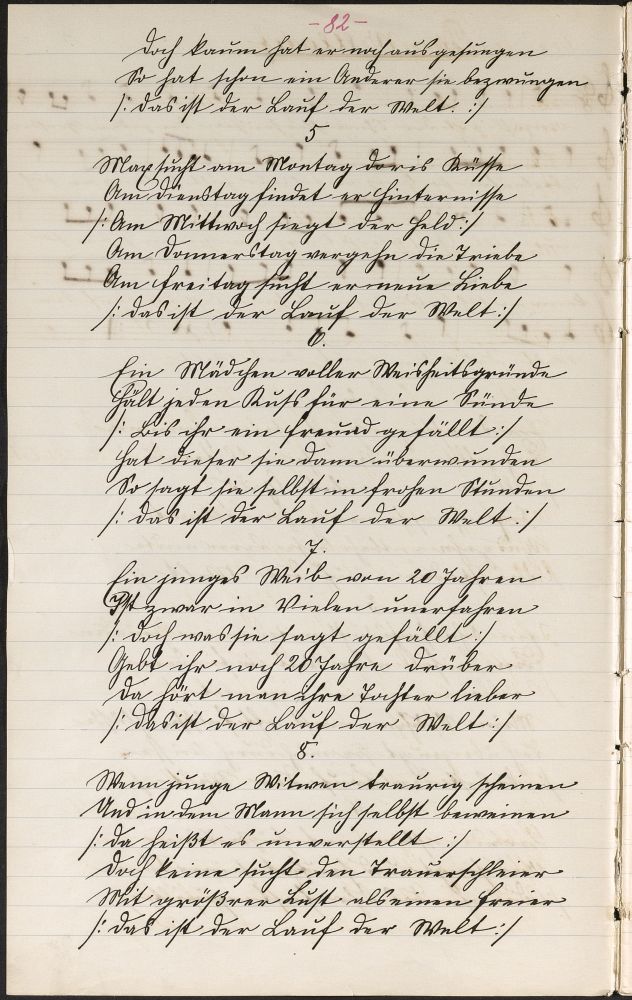 - 82 -
Doch kaum hat er noch ausgesungen
So hat schon ein Anderer sie bezwungen
/: Das ist der Lauf der Welt. :/
5
Max sucht am Montag Doris Küsse
Am Dienstag findet er Hinternisse
/: Am Mittwoch siegt der Held :/
Am Donnerstag vergehn die Triebe
Am Freitag sucht er neue Liebe
/: Das ist der Lauf der Welt :/
6.
Ein Mädchen voller Weisheitsgründe
Hält jeden Kuß für eine Sünde
/: Bis ihr ein Freund gefällt :/
Hat dieser sie dann überwunden
So sagt sie selbst in frohen Stunden
/: Das ist der Lauf der Welt :/
7.
Ein junges Weib von 20 Jahren
Ist zwar in Vielen unerfahren
/: Doch was sie sagt gefällt :/
Gebt ihr noch 20 Jahre drüber
Da hört man ihre Tochter lieber
/: Das ist der Lauf der Welt :/
8.
Wenn junge Witwen traurig scheinen
Und in dem Mann sich selbst beweinen
/: Da heißt es unverstellt :/
Doch keine sucht den Trauerschleier
Mit größrer Lust als einen Freier
/: Das ist der Lauf der Welt :/